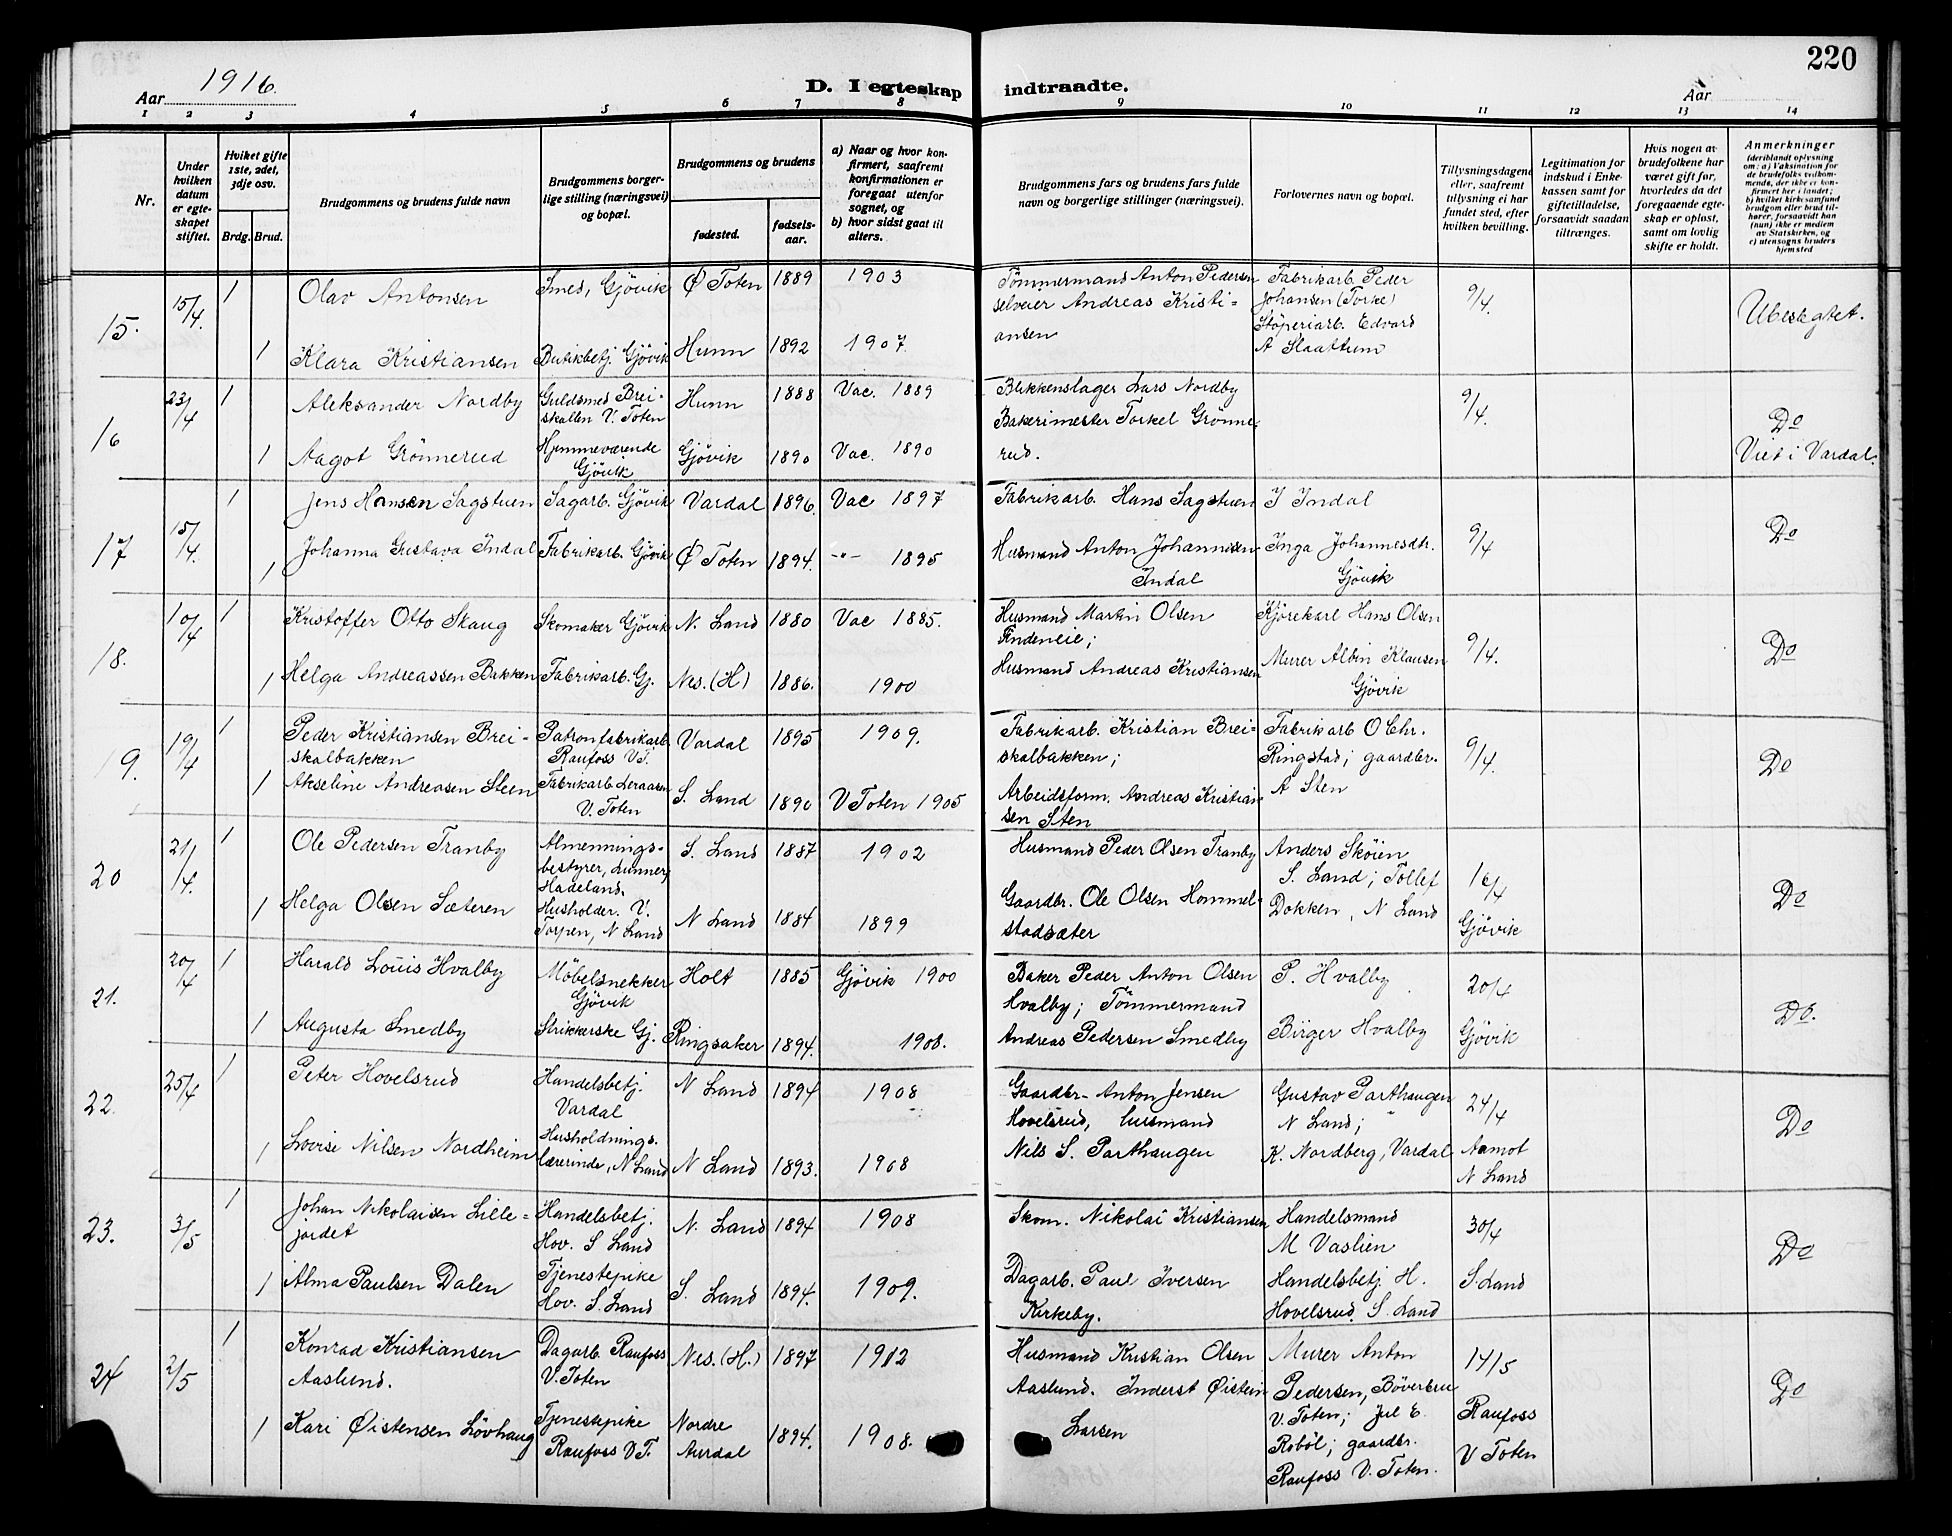 220
Aar 1916.
D. I egteskap indtraadte.
Aar
1 2 3 4 5 6 7 8 9 10 11 12 13 14
Nr.
Under hvilken datum er egteskapet stiftet.
Hvilket gifte 1ste, 2det, 3dje osv.
Brdg. Brud.
Brudgommens og brudens fulde navn
Brudgommens borgerlige stilling (næringsvei) og bopæl.
Brudgommens og brudens
fødested.
fødselsaar.
a) Naar og hvor konfirmert, saafremt konfirmationen er foregaat utenfor sognet, og
b) hvor sidst gaat til alters.
Brudgommens fars og brudens fars fulde navn og borgerlige stillinger (næringsvei).
Forlovernes navn og bopæl.
Tillysningsdagene eller, saafremt tillysning ei har fundet sted, efter hvilken bevilling.
Legitimation for indskud i Enkekassen samt for giftetilladelse, forsaavidt saadan tiltrænges.
Hvis nogen av brudefolkene har været gift før, hvorledes da det foregaaende egteskap er opløst, samt om lovlig skifte er holdt.
Anmerkninger
(deriblandt oplysning om: a) Vaksination for de brudefolks vedkommende, der ikke er konfirmert her i landet; b) hvilket kirkesamfund brudgom eller brud tilhører, forsaavidt han (hun) ikke er medlem av Statskirken, og c) utensogns bruders hjemsted
15. 15/4. 1 Olav Antonsen Smed, Gjövik Ø Toten 1889 1903
Tömmermand Anton Pedersen
selveier Andreas Kristi=
ansen
Fabrikarb. Peder
Johansen (Torke)
Stöperiarb. Edvard
A Slaattum
9/4. Ubeslegtet.
1 Klara Kristiansen Butikbetj. Gjövik Hunn 1892 1907.
16 23/4 1 Aleksander Nordby Guldsmed Brei=
skallen V. Toten Hunn 1888 Vac. 1889
Blikkenslager Lars Nordby
Bakerimester Torkel Grönne=
rud.
9/4. Do
Viet i Vardal.
1 Aagot Grönnerud Hjemmeværende
Gjövik Gjövik 1890 Vac. 1890
17 15/4. 1 Jens Hansen Sagstuen Sagarb. Gjövik Vardal 1896. Vac 1897
Fabrikarb. Hans Sagstuen
J Indal
9/4 Do
1 Johanna Gustava Indal Fabrikarb. Gjövik Ø Toten 1894. -"- 1895
Husmand Anton Johannesen
Indal
Inga Johannesdtr.
Gjövik
18. 10/4 1 Kristoffer Otto Skaug Skomaker Gjövik N. Land 1880 Vac 1885.
Husmand Martin Olsen
Findeneie;
Kjörekarl Hans Olsen
9/4. Do
1 Helga Andreassen Bakken Fabrikarb. Gj. Nes. (H) 1886. 1900
Husmand Andreas Kristiansen
Murer Albin Klausen
Gjövik
19. 19/4 1 Peder Kristiansen Brei=
skalbakken Patronfabrikarb.
Raufoss V.T. Vardal 1895 1909.
Fabrikarb. Kristian Brei=
skalbakken;
Fabrikarb O Chr.
Ringstad; gaardbr.
A Sten
9/4. Do
1 Akseline Andreasen Steen Fabrikarb. Leraasen
V. Toten S. Land 1890 V Toten 1905
Arbeidsform. Andreas Kristian=
sen Sten
20 21/4. 1 Ole Pedersen Tranby Almennings=
bestyrer, Lunner,
Hadeland. S. Land 1887 1902
Husmand Peder Olsen Tranby
Anders Sköien
S. Land; Tollef
Dokken, N Land
16/4
Gjövik Do
1 Helga Olsen Sæteren Husholder. V.
Torpen, N Land N Land 1884 1899
Gaardbr. Ole Olsen Hommel=
stadsæter
21. 20/4 1 Harald Louis Hvalby Möbelsnekker
Gjövik Holt 1885 Gjövik 1900
Baker Peder Anton Olsen
Hvalby; Tömmermand
Andreas Pedersen Smedby
P. Hvalby
Birger Hvalby
20/4
Gjövik Do.
1 Augusta Smedby Strikkerske Gj. Ringsaker 1894. 1908.
22. 25/4 1 Peter Hovelsrud Handelsbetj.
Vardal N Land 1894 1908
Gaardbr. Anton Jensen
Hovelsrud, husmand
Nils S. Parthaugen
Gustav Parthaugen
N Land;
K. Nordberg, Vardal
24/4
Aamot
N Land Do
1 Lovise Nilsen Nordheim Husholdnings.
lærerinde, N Land N Land 1893. 1908
23. 3/5 1 Johan Nikolaisen Lille=
jordet Handelsbetj.
Hov. S Land N. Land 1894 1908
Skom. Nikolai Kristiansen
Handelsmand
M Vaslien
30/4
S. Land Do
1 Alma Paulsen Dalen Tjenestepike
Hov. S. Land S. Land 1894. 1909.
Dagarb. Paul Iversen
Kirkeby.
Handelsbetj. H.
Hovelsrud. S. Land
24 2/5 1 Konrad Kristiansen
Aaslund. Dagarb. Raufoss
V. Toten Nes. (H.) 1897 1912
Husmand Kristian Olsen
Aaslund. Inderst Øistein
Larsen
Murer Anton
Pedersen, Böverbru
V. Toten; Jul E.
Roböl; gaardbr.
Raufoss V. Toten.
14/5
Raufoss
V Toten Do
1 Kari Øistensen Lövhaug Tjenestepike
Raufoss V.T. Nordre
Aurdal 1894. 1908.